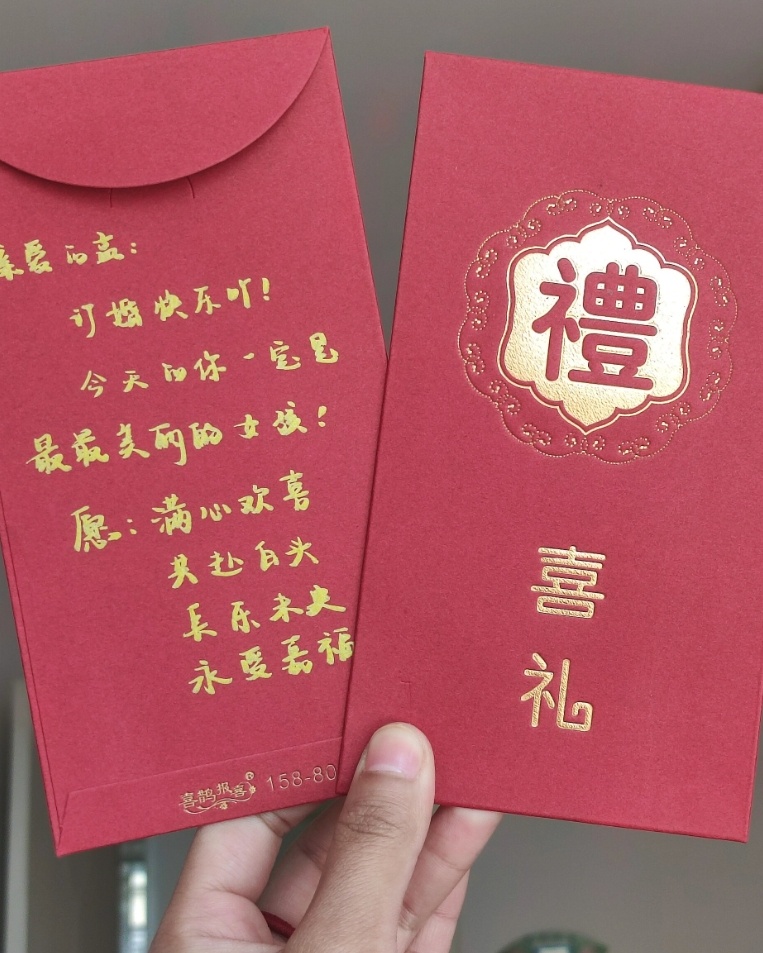 亲爱的孟：
订婚快乐吖！
今天的你一定是
最最美丽的女孩！
愿：满心欢喜
共赴白头
长乐未央
永受嘉福
喜鹊报喜® 158-80
禮
喜
礼